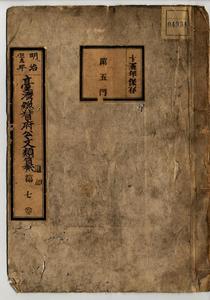 明治
臺灣總督府公文類纂
七
十五年保存
第五門